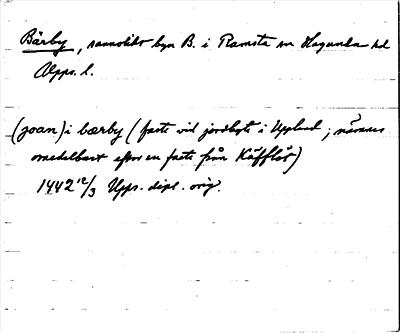 Bärby, sannolikt byn B. i Ramsta sn Hagunda hd
Upps. l.
(joan) i bærby (faste vid jordbyte i Uppland; nämnes
omedelbart efter en faste från Käfflös)
1442 12/3 Upps. dipl. orig.